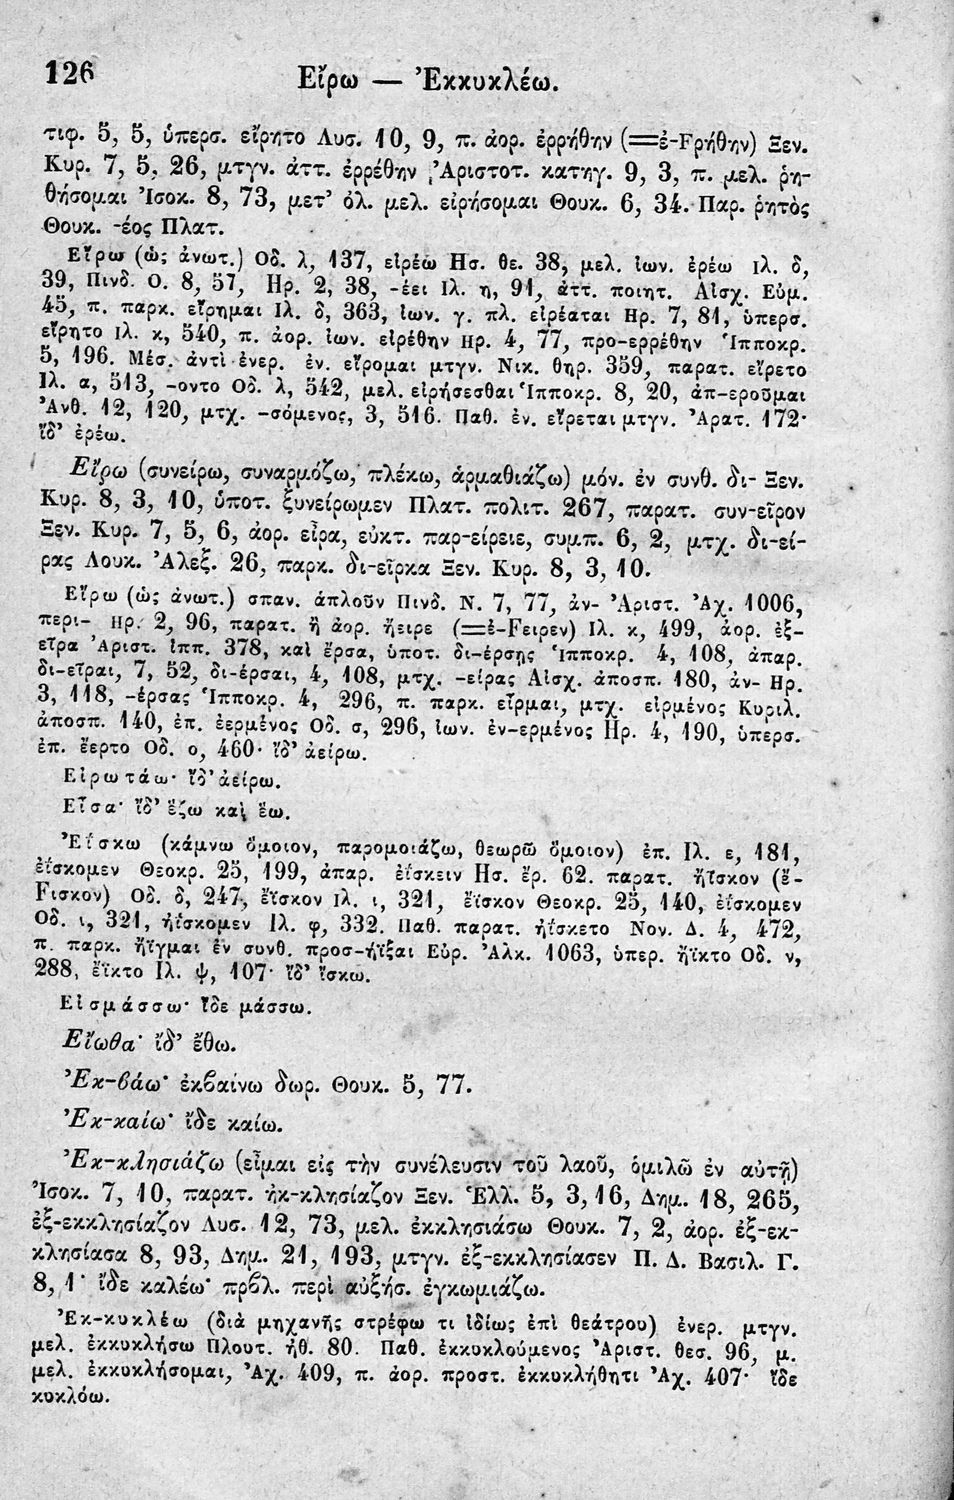 126 Εἴρω — Ἐκκυκλέω.
τιφ. 5, 5, ὑπερσ. εἴρητο Λυσ. 10, 9, π. ἀορ. ἐρρήθην (=ἐ-Fρήθην) Ξεν.
Κυρ. 7, 5, 26, μτγν. ἀττ. ἐρρέθην Ἀριστοτ. κατηγ. 9, 3, π. μελ. ῥη-
θήσομαι Ἰσοκ. 8, 73, μετ’ ὀλ. μελ. εἰρήσομαι Θουκ. 6, 34. Παρ. ῥητὸς
Θουκ. -έος Πλατ.
Εἴρω (ὡς ἀνωτ.) Οδ. λ, 137, εἰρέω Ησ. θε. 38, μελ. ἰων. ἐρέω Ιλ. δ,
39, Πινδ. Ο. 8, 57, Ηρ. 2, 38, -έει Ιλ. η, 91, ἀττ. ποιητ. Αἰσχ. Εὐμ.
45, π. παρκ. εἴρημαι Ιλ. δ, 363, ἰων. γ. πλ. εἰρέαται Ηρ. 7, 81, ὑπερσ.
εἴρητο Ιλ. κ, 540, π. ἀορ. ἰων. εἰρέθην Ηρ. 4, 77, προ-ερρέθην Ἱπποκρ.
5, 196. Μέσ. ἀντὶ ἐνερ. ἐν. εἴρομαι μτγν. Νικ. θηρ. 359, παρατ. εἴρετο
Ιλ. α, 513, -οντο Οδ. λ, 542, μελ. εἰρήσεσθαι Ἱπποκρ. 8, 20, ἀπ-εροῦμαι
Ἀνθ. 12, 120, μτχ. -σόμενος, 3, 516. Παθ. ἐν. εἴρεται μτγν. Ἀρατ. 172·
ἴδ’ ἐρέω.
Εἴρω (συνείρω, συναρμόζω, πλέκω, ἁρμαθιάζω) μόν. ἐν συνθ. δι- Ξεν.
Κυρ. 8, 3, 10, ὑποτ. ξυνείρωμεν Πλατ. πολιτ. 267, παρατ. συν-εῖρον
Ξεν. Κυρ. 7, 5, 6, ἀορ. εἶρα, εὐκτ. παρ-είρειε, συμπ. 6, 2, μτχ. δι-εί-
ρας Λουκ. Ἀλεξ. 26, παρκ. δι-εῖρκα Ξεν. Κυρ. 8, 3, 10.
Εἴρω (ὡς ἀνωτ.) σπαν. ἁπλοῦν Πινδ. Ν. 7, 77, ἀν- Ἀριστ. Ἀχ. 1006,
περι- Ηρ. 2, 96, παρατ. ἢ ἀορ. ἤειρε (=ἐ-Fειρεν) Ιλ. κ, 499, ἀορ. ἐξ-
εῖρα Ἀριστ. ἱππ. 378, καὶ ἔρσα, ὑποτ. δι-έρσῃς Ἱπποκρ. 4, 108, ἀπαρ.
δι-εῖραι, 7, 52, δι-έρσαι, 4, 108, μτχ. -είρας Αἰσχ. ἀποσπ. 180, ἀν- Ηρ.
3, 118, -έρσας Ἱπποκρ. 4, 296, π. παρκ. εἶρμαι, μτχ. εἰρμένος Κυριλ.
ἀποσπ. 140, ἐπ. ἐερμένος Οδ. σ, 296, ἰων. ἐν-ερμένος Ηρ. 4, 190, ὑπερσ.
ἐπ. ἔερτο Οδ. ο, 460· ἴδ’ ἀείρω.
Εἰρωτάω· ἴδ’ ἀείρω.
Εἷσα· ἴδ’ ἕζω καὶ ἕω.
Ἐΐσκω (κάμνω ὅμοιον, παρομοιάζω, θεωρῶ ὅμοιον) ἐπ. Ιλ. ε, 181,
ἐΐσκομεν Θεοκρ. 25, 199, ἀπαρ. ἐΐσκειν Ησ. ἔρ. 62. παρατ. ἤϊσκον (ἐ-
Fισκον) Οδ. δ, 247, ἔϊσκον Ιλ. ι, 321, ἔϊσκον Θεοκρ. 25, 140, ἐΐσκομεν
Οδ. ι, 321, ἠΐσκομεν Ιλ. φ, 332. Παθ. παρατ. ἠΐσκετο Νον. Δ. 4, 472,
π. παρκ. ἤϊγμαι ἐν συνθ. προσ-ήϊξαι Εὐρ. Ἀλκ. 1063, ὑπερ. ἤϊκτο Οδ. ν,
288, ἔϊκτο Ιλ. ψ, 107· ἴδ’ ἴσκω.
Εἰσμάσσω· ἴδε μάσσω.
Εἴωθα· ἴδ’ ἔθω.
Ἐκ-βάω· ἐκβαίνω δωρ. Θουκ. 5, 77.
Ἐκ-καίω· ἴδε καίω.
Ἐκ-κλησιάζω (εἶμαι εἰς τὴν συνέλευσιν τοῦ λαοῦ, ὁμιλῶ ἐν αὐτῇ)
Ἰσοκ. 7, 10, παρατ. ἠκ-κλησίαζον Ξεν. Ἑλλ. 5, 3, 16, Δημ. 18, 265,
ἐξ-εκκλησίαζον Λυσ. 12, 73, μελ. ἐκκλησιάσω Θουκ. 7, 2, ἀορ. ἐξ-εκ-
κλησίασα 8, 93, Δημ. 21, 193, μτγν. ἐξ-εκκλησίασεν Π. Δ. Βασιλ. Γ.
8, 1· ἴδε καλέω· πρβλ. περὶ αὐξήσ. ἐγκωμιάζω.
Ἐκ-κυκλέω (διὰ μηχανῆς στρέφω τι ἰδίως ἐπὶ θεάτρου) ἐνερ. μτγν.
μελ. ἐκκυκλήσω Πλουτ. ἠθ. 80. Παθ. ἐκκυκλούμενος Ἀριστ. θεσ. 96, μ.
μελ. ἐκκυκλήσομαι, Ἀχ. 409, π. ἀορ. προστ. ἐκκυκλήθητι Ἀχ. 407· ἴδε
κυκλόω.